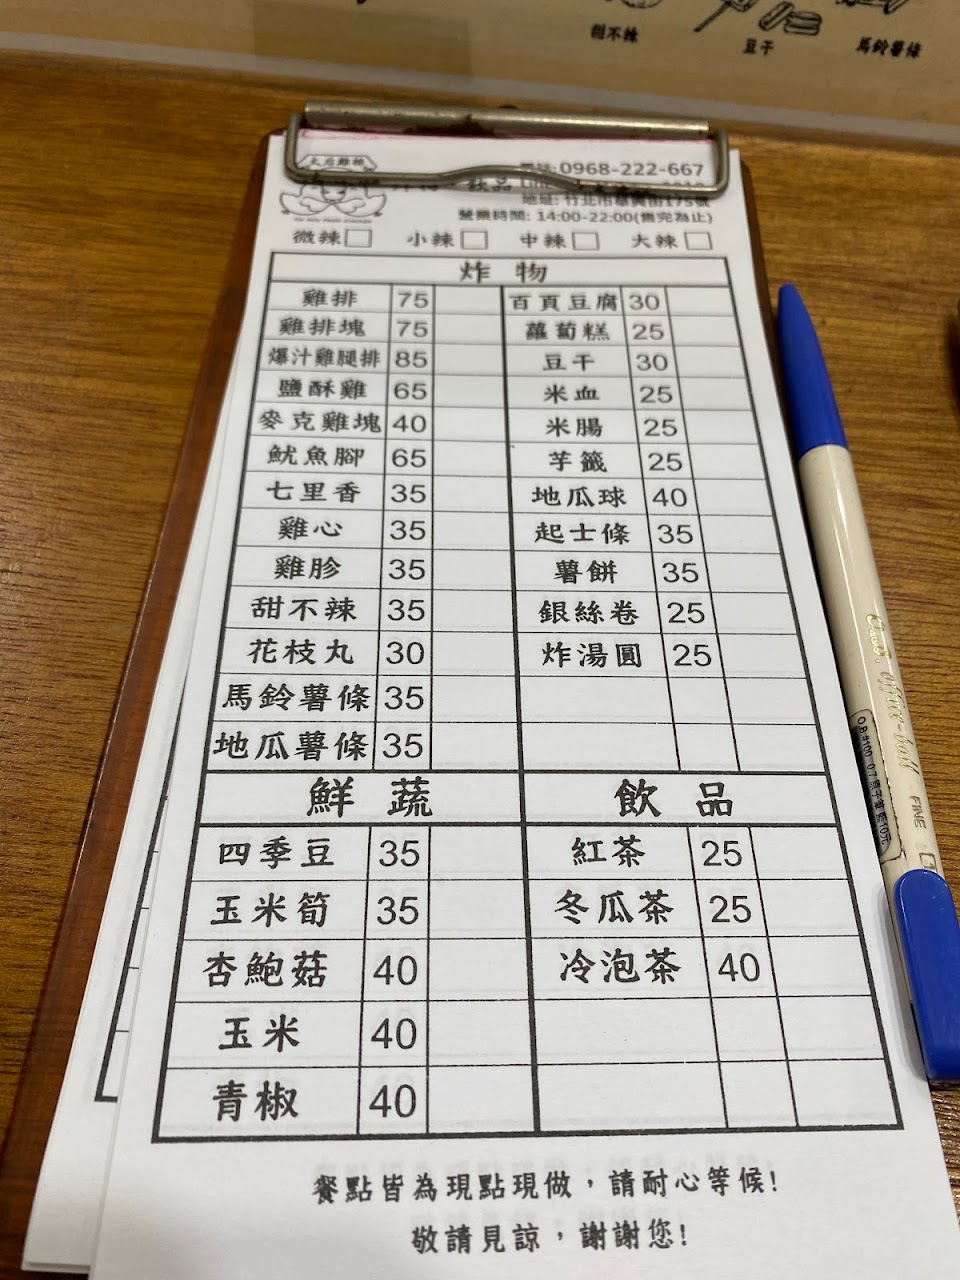 甜不辣
豆干
馬鈴薯條
太后雞排
0968-222-667
飲品
地址: 竹北市華興街175號
營業時間: 14:00-22:00(售完為止)
微辣 小辣 中辣 大辣
炸物
雞排 75 百頁豆腐 30
雞排塊 75 蘿蔔糕 25
爆汁雞腿排 85 豆干 30
鹽酥雞 65 米血 25
麥克雞塊 40 米腸 25
魷魚腳 65 芋籤 25
七里香 35 地瓜球 40
雞心 35 起士條 35
雞胗 35 薯餅 35
甜不辣 35 銀絲卷 25
花枝丸 30 炸湯圓 25
馬鈴薯條 35
地瓜薯條 35
鮮蔬 飲品
四季豆 35 紅茶 25
玉米筍 35 冬瓜茶 25
杏鮑菇 40 冷泡茶 40
玉米 40
青椒 40
餐點皆為現點現做，請耐心等候!
敬請見諒，謝謝您!
O.B.#100
FINE